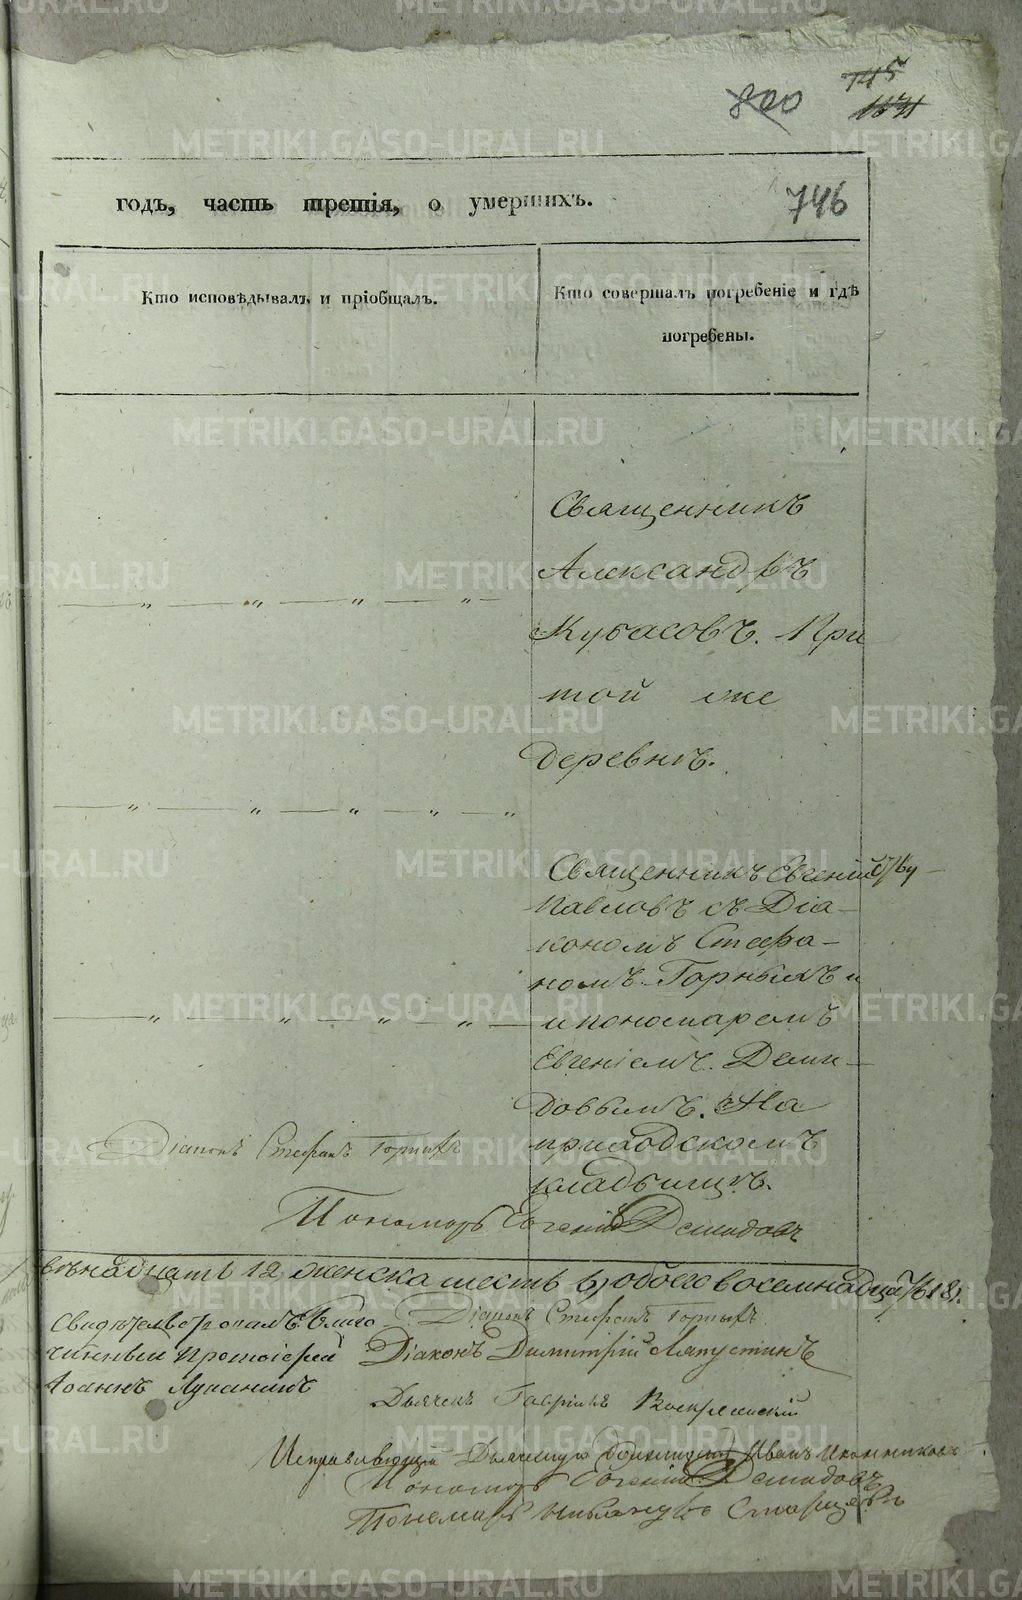 METRIKI.GASO-URAL.RU
800 745
годъ, часть третія, о умершихъ. 746
Кто исповѣдывалъ и пріобщалъ.
Кто совершалъ погребеніе и гдѣ
погребены.
Священникъ
Александръ
Кубасовъ. При
той же
деревнѣ.
Священникъ Евгеній
Павловъ съ Діа-
кономъ Стефа-
номъ Горныхъ и
и пономаремъ
Евгеніемъ Деми-
довымъ. На
приходскомъ
кладбищѣ.
Діаконъ Стефанъ Горныхъ
Пономарь Евгеній Демидовъ
12 женска шесть обоего восемнадцать 18.
Свидѣтельствовалъ Благо
чинный Протоіерей
Іоаннъ
Діаконъ Стефанъ Горныхъ
Діаконъ Димитрій Ляпустинъ
Дьячекъ Гавріилъ Воскресенскій
Исправляющій Дьяческую должность Иванъ Иконниковъ
Пономарь Евгеній Демидовъ
Пономарь Старцевъ